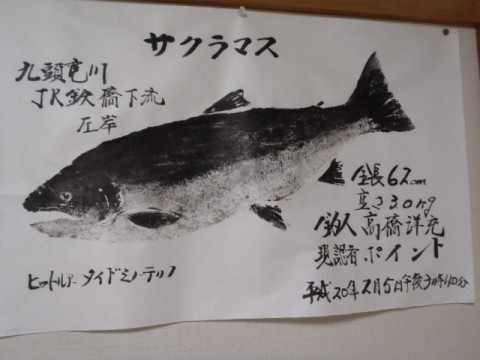 サクラマス
九頭竜川
JR鉄橋下流
左岸
全長62cm
重さ3.0kg
釣人 高橋洋充
現認者 ポイント
ヒットルアー タイドミノーテリフ
平成20年2月5日午後3時10分